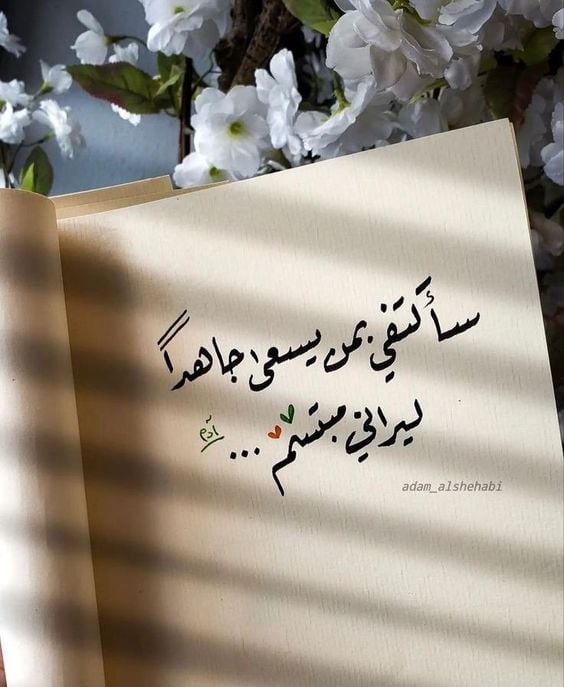 سأكتفي بمن يسعى جاهداً
ليراني مبتسم ...
آدم
adam_alshehabi